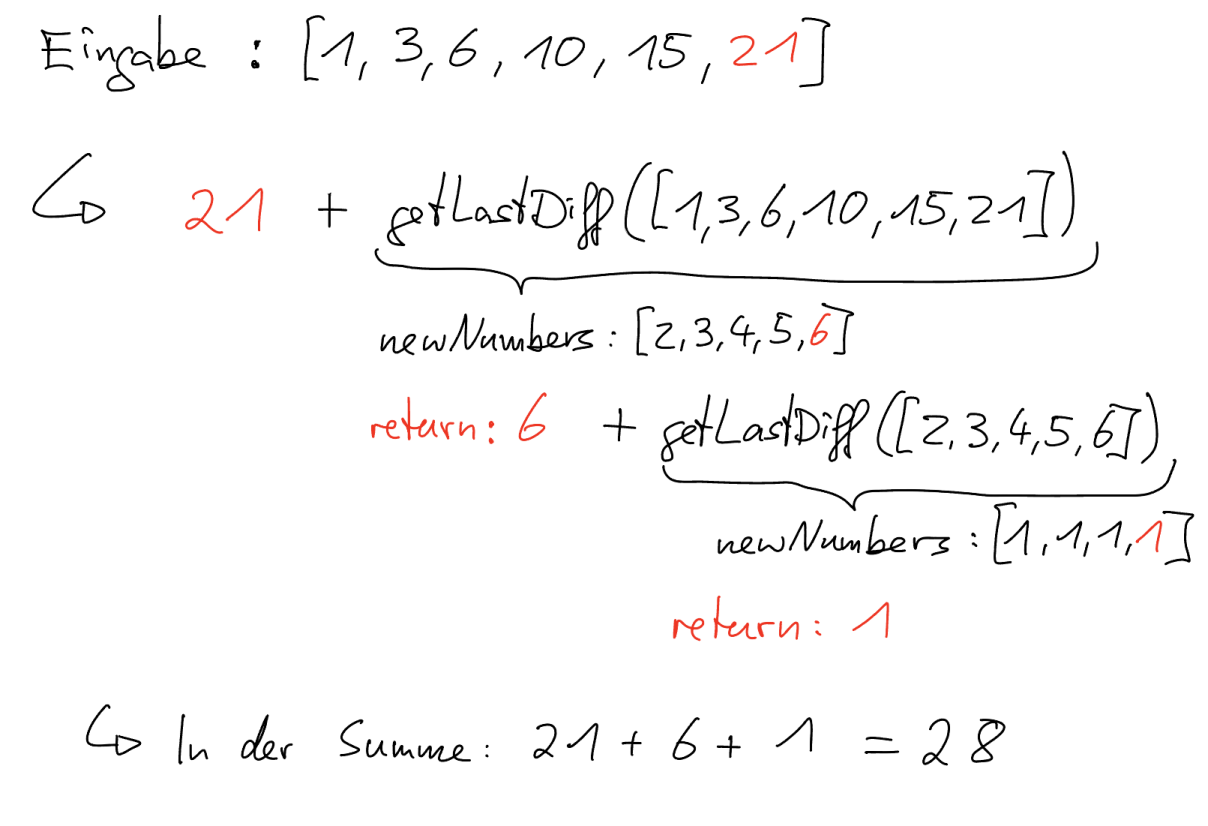 Eingabe : [1, 3, 6, 10, 15, 21]
21 + getLastDiff([1,3,6,10,15,21])
newNumbers: [2,3,4,5,6]
return: 6 + getLastDiff([2,3,4,5,6])
newNumbers: [1,1,1,1]
return: 1
In der Summe: 21 + 6 + 1 = 28